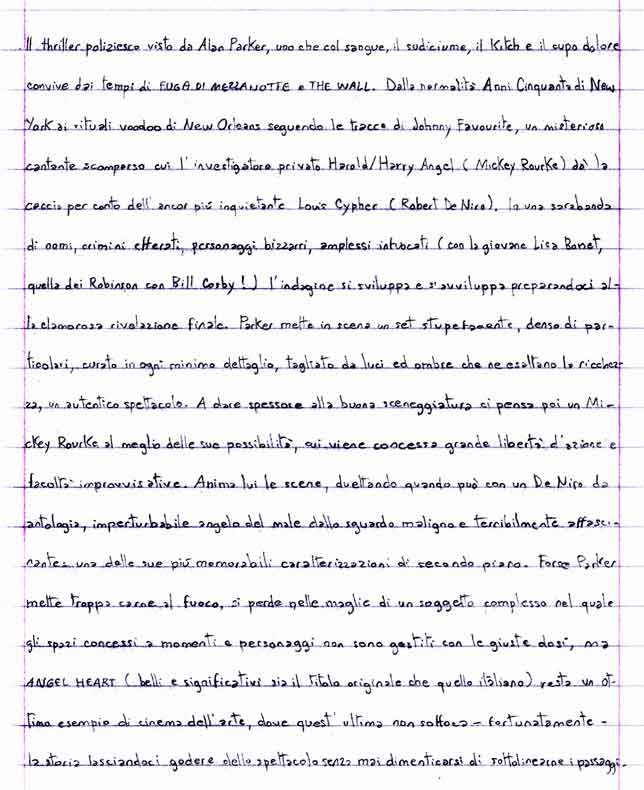 Il thriller poliziesco visto da Alan Parker, uno che col sangue, il sudiciume, il Kitch e il cupo dolore
convive dai tempi di FUGA DI MEZZANOTTE e THE WALL. Dalla normalità Anni Cinquanta di New
York ai rituali voodoo di New Orleans seguendo le tracce di Johnny Favourite, un misterioso
cantante scomparso cui l'investigatore privato Harold/Harry Angel (Mickey Rourke) dà la
caccia per conto dell'ancor più inquietante Louis Cypher (Robert De Niro). In una sarabanda
di nomi, crimini efferati, personaggi bizzarri, amplessi infuocati (con la giovane Lisa Bonet,
quella dei Robinson con Bill Cosby!) l'indagine si sviluppa e s'avviluppa preparandoci al-
la clamorosa rivelazione finale. Parker mette in scena un set stupefacente, denso di par-
ticolari, curato in ogni minimo dettaglio, tagliato da luci ed ombre che ne esaltano la ricchez-
za, un autentico spettacolo. A dare spessore alla buona sceneggiatura ci pensa poi un Mi-
ckey Rourke al meglio delle sue possibilità, cui viene concessa grande libertà d'azione e
facoltà improvvisative. Anima lui le scene, duettando quando può con un De Niro da
antologia, imperturbabile angelo del male dallo sguardo maligno e terribilmente affasci-
nante: una delle sue più memorabili caratterizzazioni di secondo piano. Forse Parker
mette troppa carne al fuoco, si perde nelle maglie di un soggetto complesso nel quale
gli spazi concessi a momenti e personaggi non sono gestiti con le giuste dosi, ma
ANGEL HEART (belli e significativi sia il titolo originale che quello italiano) resta un ot-
timo esempio di cinema dell'arte, dove quest'ultima non soffoca - fortunatamente -
la storia lasciandoci godere dello spettacolo senza mai dimenticarsi di sottolinearne i passaggi.